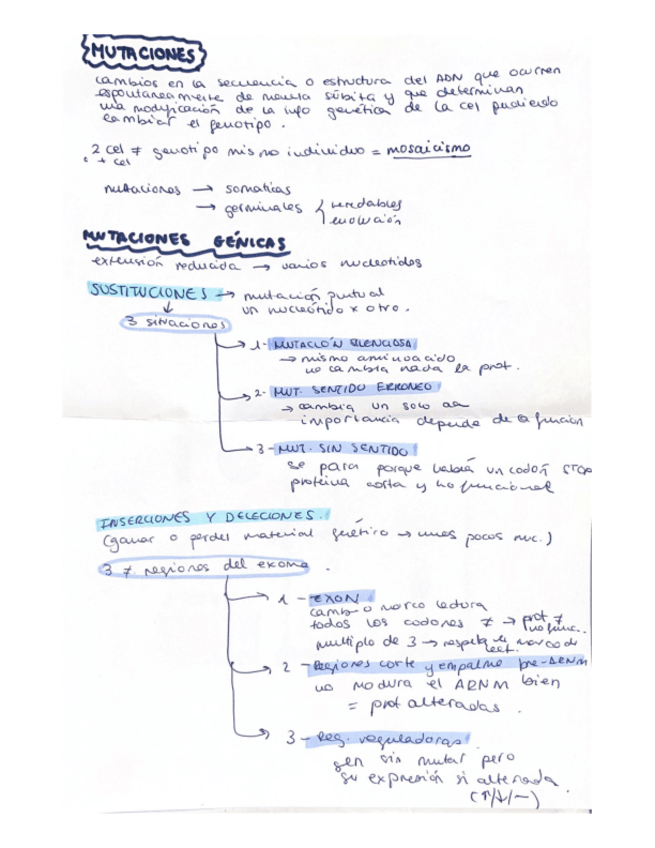 MUTACIONES
cambios en la secuencia o estructura del ADN que ocurren
espontaneamente de manera súbita y que determinan
una modificación de la info genética de la cel pudiendo
cambiar el fenotipo.
2 cel ≠ genotipo mismo individuo = mosaicismo
o + cel
mutaciones → somaticas
→ germinales { heredables
evolución
MUTACIONES GÉNICAS
extensión reducida → varios nucleotidos
SUSTITUCIONES → mutación puntual
un nucleótido x otro.
3 situaciones
1- MUTACIÓN SILENCIOSA
→ mismo aminoacido
no cambia nada la prot.
2- MUT. SENTIDO ERRONEO
→ cambia un solo aa
importancia depende de la función
3- MUT. SIN SENTIDO
se para porque habia un codon STOP
proteina corta y no funcional
INSERCIONES Y DELECIONES.
(ganar o perder material genético → unos pocos nuc.)
3 ≠ regiones del exoma.
1 - EXON
cambio marco lectura
todos los codones ≠ → prot ≠
no func.
multiplo de 3 → respeta el marco de
lect.
2 - Regiones corte y empalme pre-ARNM
no madura el ARNM bien
= prot alteradas.
3 - Reg. reguladoras
gen sin mutar pero
su expresión si alterada.
(↑/↓/–)